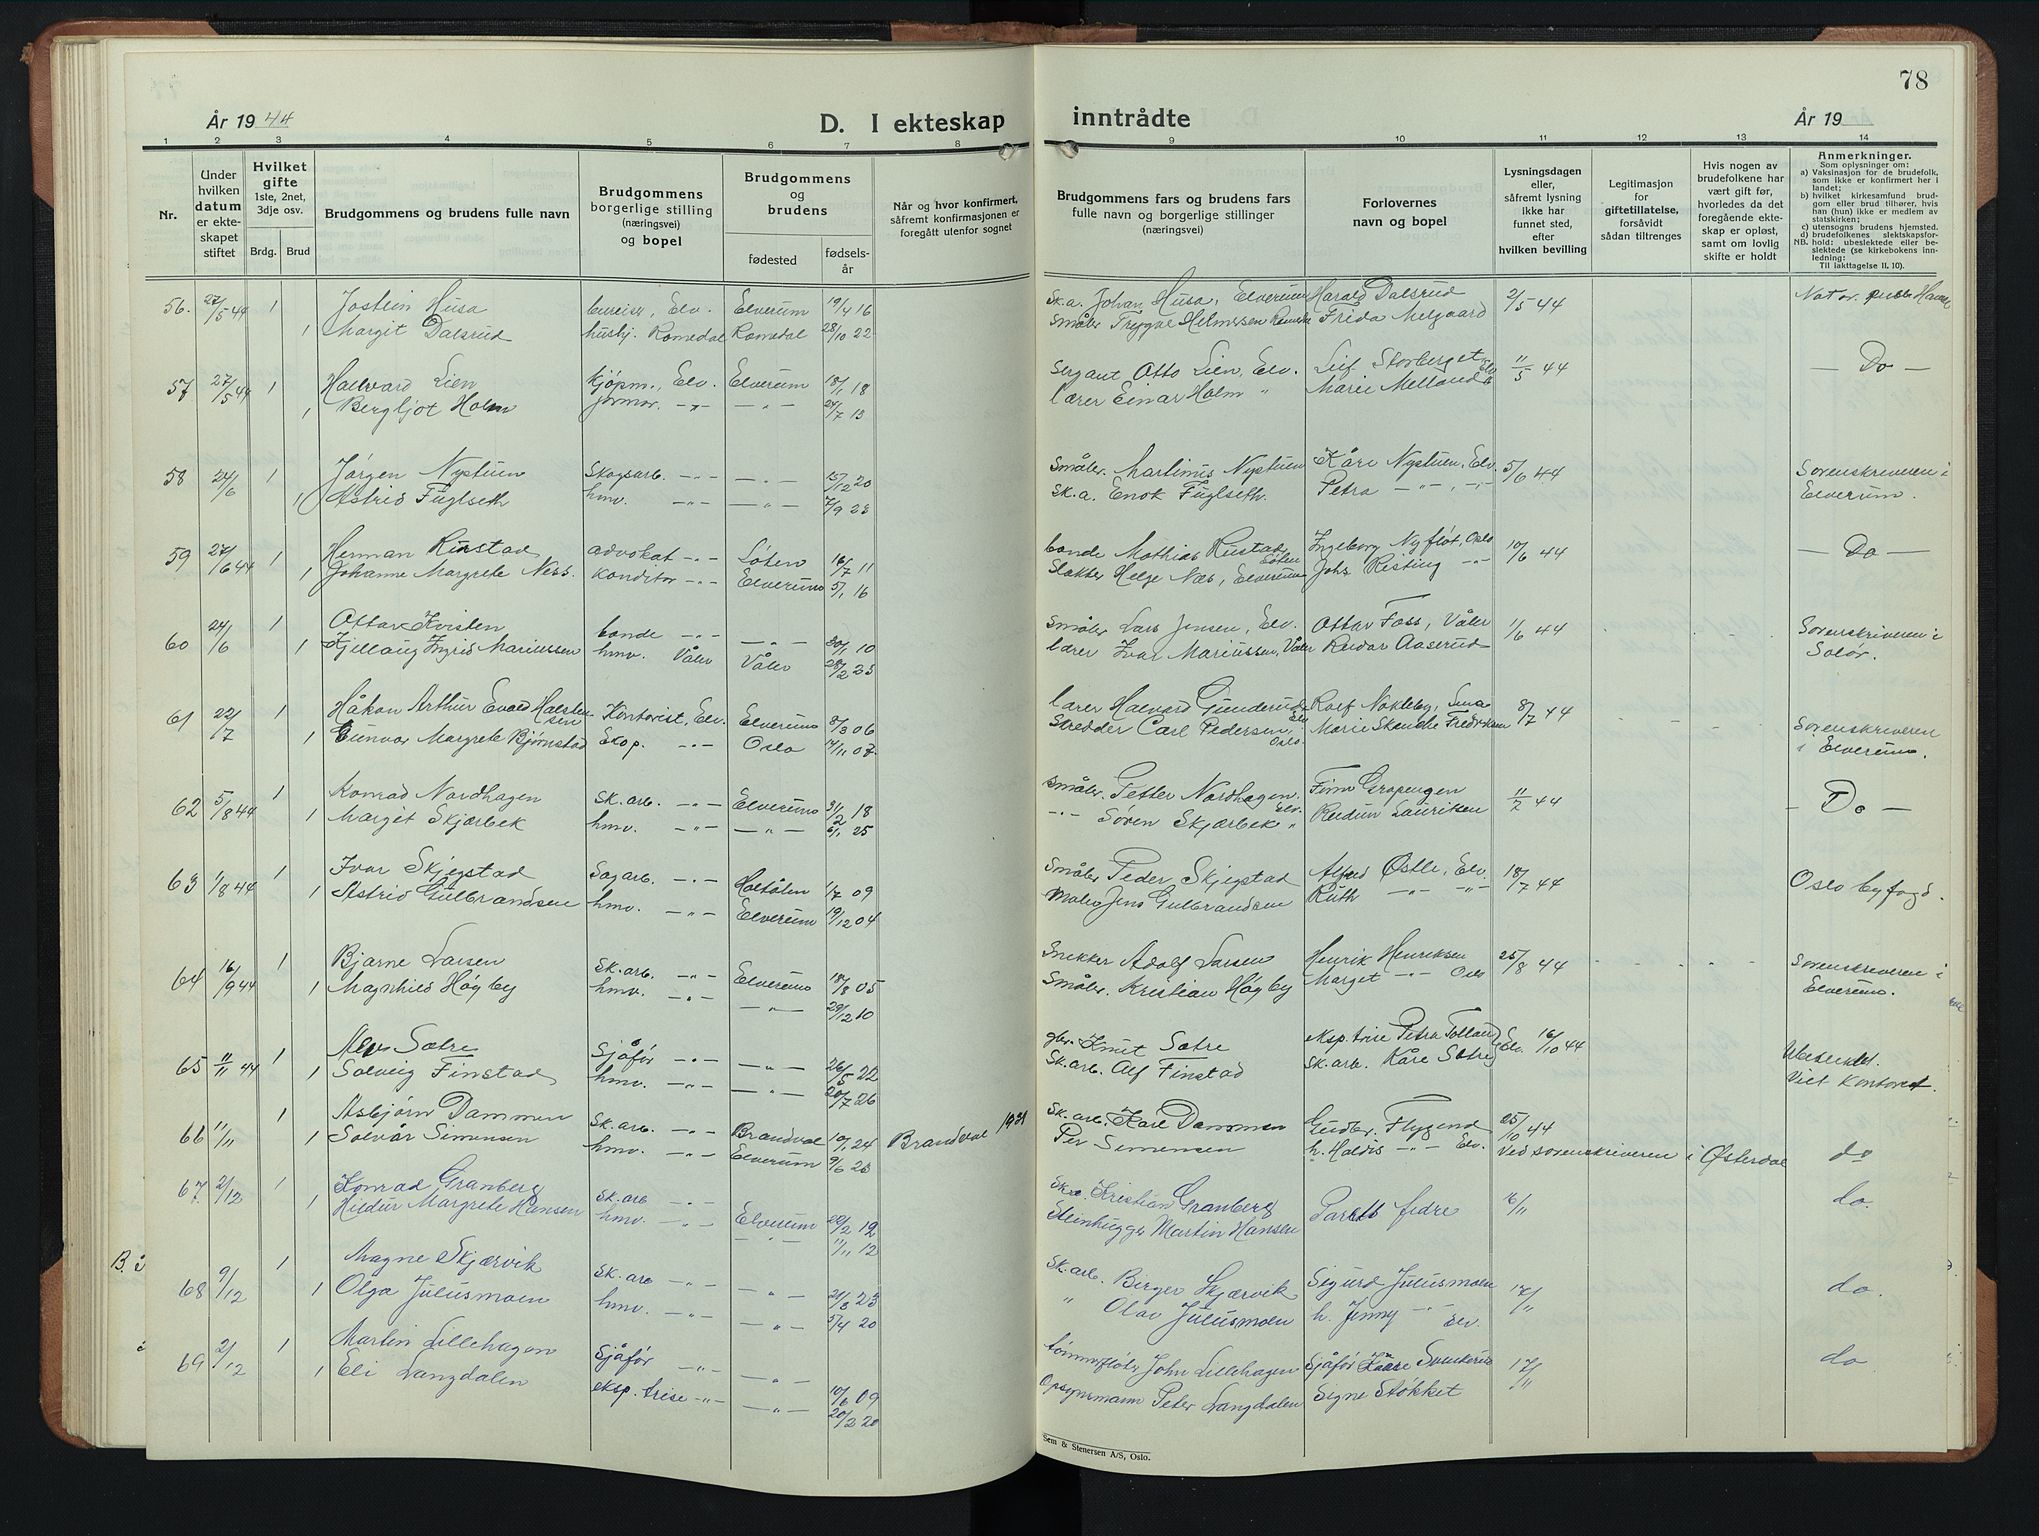 78
År 1944
D. I ekteskap
inntrådte
År 19
1 2 3 4 5 6 7 8
9 10 11 12 13 14
Nr.
Under hvilken datum er ekteskapet stiftet
Hvilket gifte 1ste, 2net, 3dje osv.
Brdg. Brud
Brudgommens og brudens fulle navn
Brudgommens borgerlige stilling (næringsvei) og bopel
Brudgommens og brudens
fødested
fødselsår
Når og hvor konfirmert, såfremt konfirmasjonen er foregått utenfor sognet
Brudgommens fars og brudens fars fulle navn og borgerlige stillinger (næringsvei)
Forlovernes navn og bopel
Lysningsdagen eller, såfremt lysning ikke har funnet sted, efter hvilken bevilling
Legitimasjon for giftetillatelse, forsåvidt sådan tiltrenges
Hvis nogen av brudefolkene har vært gift før, hvorledes da det foregående ekteskap er opløst, samt om lovlig skifte er holdt
Anmerkninger.
Som oplysninger om:
a) Vaksinasjon for de brudefolk, som ikke er konfirmert her i landet;
b) hvilket kirkesamfund brudgom eller brud tilhører, hvis han (hun) ikke er medlem av statskirken;
c) utensogns brudens hjemsted.
d) brudefolkenes slektskapsforhold: ubeslektede eller beslektede (se kirkebokens innledning:
NB.
Til iakttagelse II. 10).
56. 27/5 44 1 Jostein Husa bureiser, Elv. Elverum 19/4 16 Sk.a. Johan Husa, Elverum Harald Dalsrud 2/5 44
1 Margit Dalsrud husbj. Romedal Romedal 28/10 22 Småbr. Trygve Helmersen Frida Melgaard
57 27/5 44 1 Halvard Lien Kjøpm., Elv. Elverum 18/1 18 Sergant Otto Lien, Elv. Leif Storberget, Elv. 11/5 44 — Do —
1 Bergljot Holm jormor. —"— —"— 24/7 13 lærer Einar Holm " Marie Melland "
58 24/6 1 Jørgen Nystuen Skogsarb. —"— —"— 25/12 20 Småbr. Martinus Nystuen Kåre Nystuen, Elv. 5/6 44 Sorenskriveren i
1 Astrid Fuglseth hmv. —"— —"— 7/9 23 Sk.a. Enok Fuglseth. Petra —"—, —"— Elverum.
59 27/6 44 1 Herman Rustad advokat —"— Løten 16/7 11 bonde Mathias Rustad, Løten Ingeborg Nyfløt, Oslo 10/6 44 — Do —
1 Johanne Margrete Ness. Konditor —"— Elverum 5/1 16 Slakter Helge Næs, Elverum Johs Risting —"—
60 24/6 1 Ottar Kvisten bonde —"— —"— 30/1 10 Småbr Lars Jensen, Elv. Ottar Foss, Våler 1/6 44 Sorenskriveren i
1 Kjellaug Ingrid Mariussen hmv. Våler Våler 28/2 23 lærer Ivar Mariussen, Våler Reidar Aaserud Solør.
61 22/7 1 Håkon Arthur Evald Halstensen Kontorist, Elv. Elverum 8/3 06 lærer Halvard Gunderud, Elv Rolf Nokleby, 8/7 44 Sorenskriveren
1 Gunvor Margrete Bjørnstad Eksp. —"— Oslo 14/11 07 Skredder Carl Pedersen, Oslo Marie Skancke Fredriksen i Elverum.
62 5/8 44 1 Konrad Nordhagen Sk.arb. —"— Elverum 31/2 18 småbr. Petter Nordhagen, Elv. Finn Gropengen 11/7 44 — Do —
1 Marget Skjærbek hmv. —"— —"— 6/1 25 —"— Soren Skjærbek " Reidun Lauritsen
63 1/8 44 1 Ivar Skjegstad Sagarb. —"— Holtålen 1/7 09 Småbr Peder Skjegstad Alfred Østli, Elv. 18/7 44 Oslo byfogd.
1 Astrid Gulbrandsen hmv. —"— Elverum 19/12 04 Maler Jens Gulbrandsen Ruth —"— —"—
64 16/9 44 1 Bjarne Larsen Sk.arb. —"— Elverum 18/8 05 Snekker Adolf Larsen Henrik Henriksen 25/8 44 Sorenskriveren i
1 Magnhild Høgby hmv. —"— —"— 29/12 10 Småbr. Kristian Høgby Marget —"— Oslo Elverum.
65 11/11 44 1 Alv Sætre Sjåfør —"— —"— 26/5 22 gbr. Knut Sætre eksp.trise Petra Tolland Elv. 16/10 44 Ubeslektet.
1 Solveig Finstad hmv. —"— —"— 20/7 26 Sk.arb. Alf Finstad Sk.arb. Kåre Sætre Viet kontoret.
66 11/11 1 Asbjørn Dammen Sk.arb. —"— Brandval 10/1 24 Brandval 1931 Sk.arb. Karl Dammen Gudbr. Flygind 25/10 44
1 Solvår Simensen hmv. —"— Elverum 9/6 23 Per Simensen h. Haldis —"— Elv. Ved sorenskriveren i Østerdal do
67. 2/12 1 Konrad Granberg Sk.arb —"— Elverum 22/2 19 Kristian Granberg Paret's fedre 16/11 do.
1 Hildur Margrete Hansen hmv. —"— —"— 11/11 12 Steinhugger Martin Hansen
68 9/12 1 Magne Skjærvik Sk.arb —"— —"— 21/8 23 Sk.arb. Berger Skjærvik Sigurd Julusmoen 17/11 do.
1 Olga Julusmoen hmv. —"— —"— 5/4 20 " Olav Julusmoen h. Jenny —"— Elv.
69 2/12 1 Martin Lillehagen Sjåfør —"— —"— 10/6 09 tømmerfløter John Lillehagen Sjåfør Kåre 17/11 do
1 Eli Langdalen eksp.trise —"— —"— 20/2 20 Opsynsmann Peter Langdalen Signe Stokket
Sem & Stenersen A/S, Oslo.